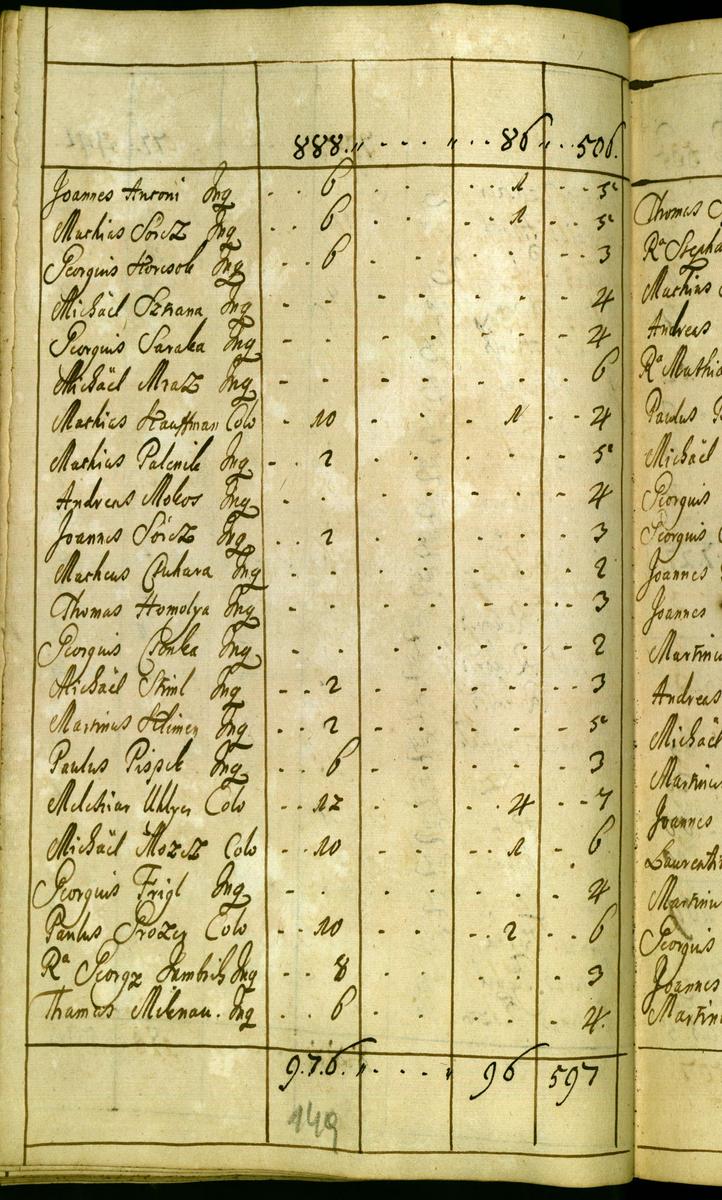 888. " . . . . " . . 86 " . . 506.
Joannes Antoni Inq . . 6 . . . . 1 . . 5
Mathias Soicz Inq . . 6 . . . . 1 . . 5
Georgius Horesok Inq . . 6 . . . . . . . 3
Michäel Szkana Inq . . . . . . . . . 4
Georgius Saraka Inq . . . . . . . . . 4
Michäel Mraz Inq . . . . . . . . . 6
Mathias Hauffman Colo . 10 . . . . 1 . . 4
Mathias Palenik Inq . . 2 . . . . . . . 5
Andreas Mokos Inq . . . . . . . . . 4
Joannes Soicz Inq . . 2 . . . . . . . 3
Matheus Cuhara Inq . . . . . . . . . 2
Thomas Homolya Inq . . . . . . . . . 3
Georgius Conka Inq . . . . . . . . . 2
Michäel Stiml Inq . . 2 . . . . . . . 3
Martinus Klimen Inq . . 2 . . . . . . . 5
Paulus Pispek Inq . . 6 . . . . . . . 3
Melchiar Uhlyer Colo . . 12 . . . . 4 . . 7
Michäel Mozcz Colo . . 10 . . . . 1 . . 6
Georgius Frigl Inq . . . . . . . . . 4
Paulus Prozer Colo . . 10 . . . . 2 . . 6
Ra Georgz Jambrich Inq . . 8 . . . . . . . 3
Thamas Milenau. Inq . . 6 . . . . . . . 4.
9.7.6. " . . . . " 96 597
149
Thomas
Ra Stepha
Mathias
Andreas
Ra Mathia
Paulus
Michäel
Georgius
Georgius
Joannes
Joannes
Martinu
Andreas
Michäe
Martinu
Joannes
Laurenti
Martinu
Georgius
Joannes
Martin